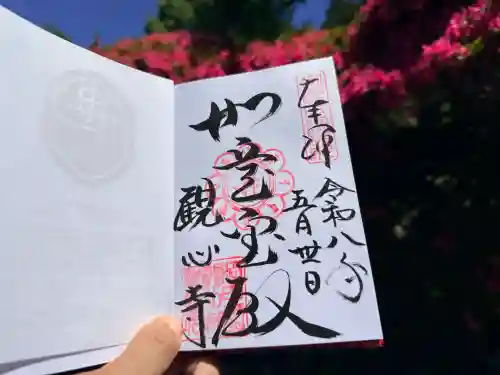 奉拝
令和八年
五月廿日
如意宝殿
観心寺